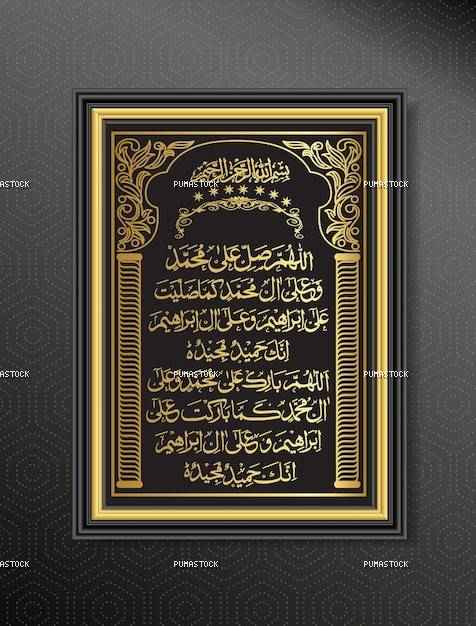 بسم الله الرحمن الرحيم
PUMASTOCK PUMASTOCK PUMASTOCK
اللهم صل على محمد
وعلى ال محمد كما صليت
على ابراهيم وعلى ال ابراهيم
انك حميد مجيد
PUMASTOCK PUMASTOCK PUMASTOCK
اللهم بارك على محمد وعلى
ال محمد كما باركت على
ابراهيم وعلى ال ابراهيم
انك حميد مجيد
PUMASTOCK PUMASTOCK PUMASTOCK